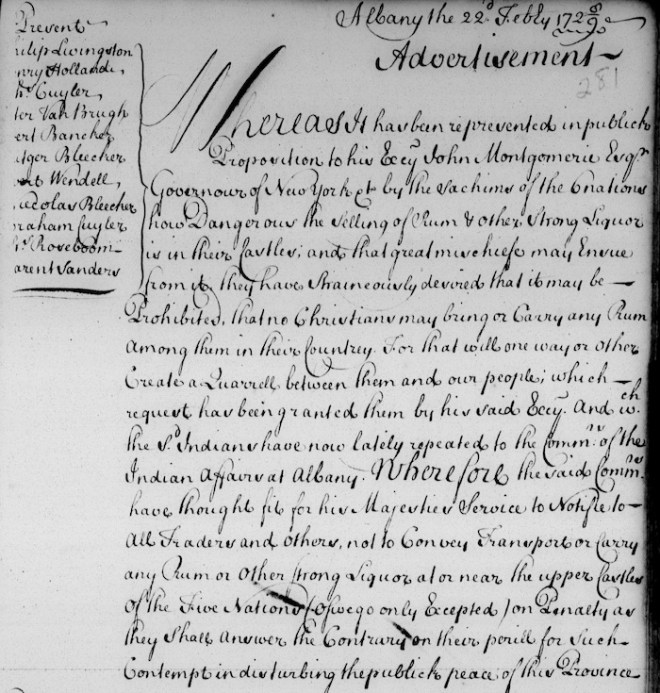 Albany the 22d. Febry 1728/9
Advertisement
281
Present
hilip Livingston
enry Holland
hs. Cuyler
ter Van Brugh
ert Bancker
utger Bleecker
Wendell
icolas Bleecker
braham Cuyler
Roseboom
arent Sanders
Whereas It has been represented in publick
Proposition to his Excy John Montgomerie Esqr.
Governour of New York &t by the Sachims of the 6 nations
how Dangerous the Selling of Rum & other Strong Liquor
is in their Castles, and that great mischiefe may Ensue
from it, they have Straineously desired that it may be
Prohibited, that no Christians may bring or Carry any Rum
among them in their Countrey. For that will one way or other
Create a Quarrell between them and our people; which
request has been granted them by his said Excy. And wch.
the Sd. Indians have now lately repeated to the Commrs. of the
Indian Affairs at Albany. Wherefore the said Commrs.
have thought fit for his Majesties Service to Notifie to
All Traders and others, not to Convey Transport or Carry
any Rum or other Strong Liquor at or near the upper Castles
of the Five Nations (Oswego only Excepted) on Penalty as
they Shall Answer the Contrary on their perill for Such
Contempt in disturbing the publick peace of this Province